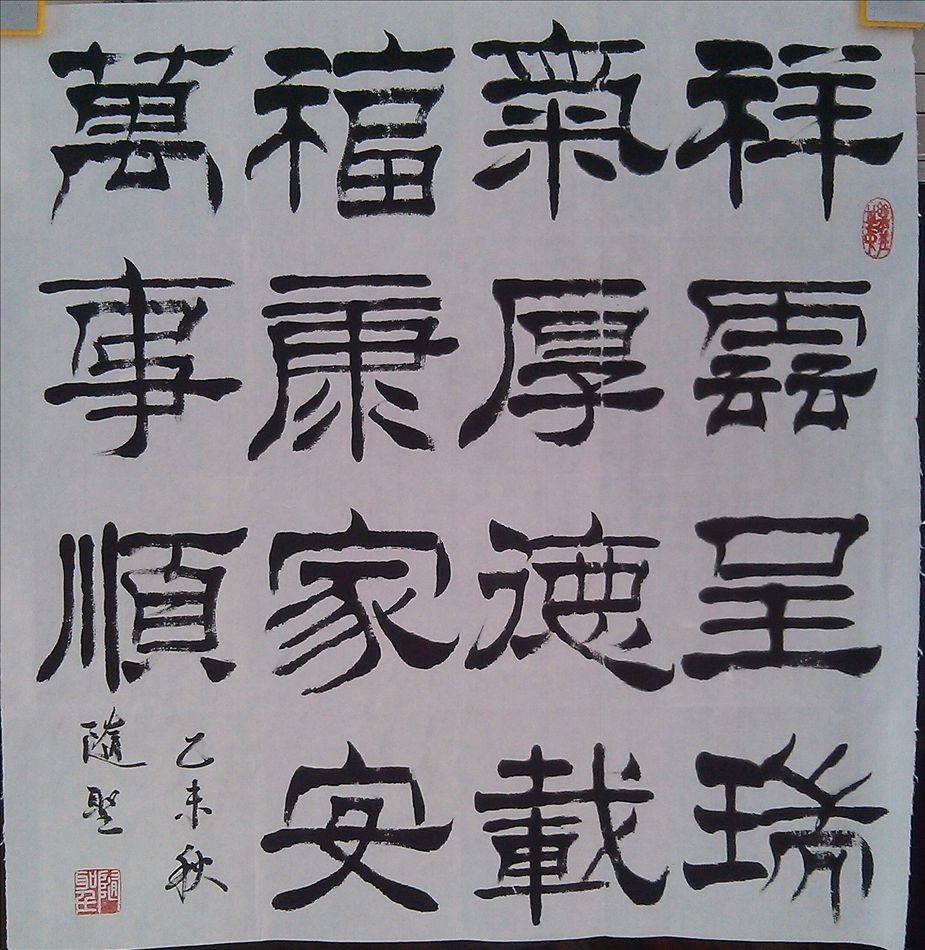 祥雲呈瑞
氣厚德載
福康家安
萬事順
乙未秋
隨